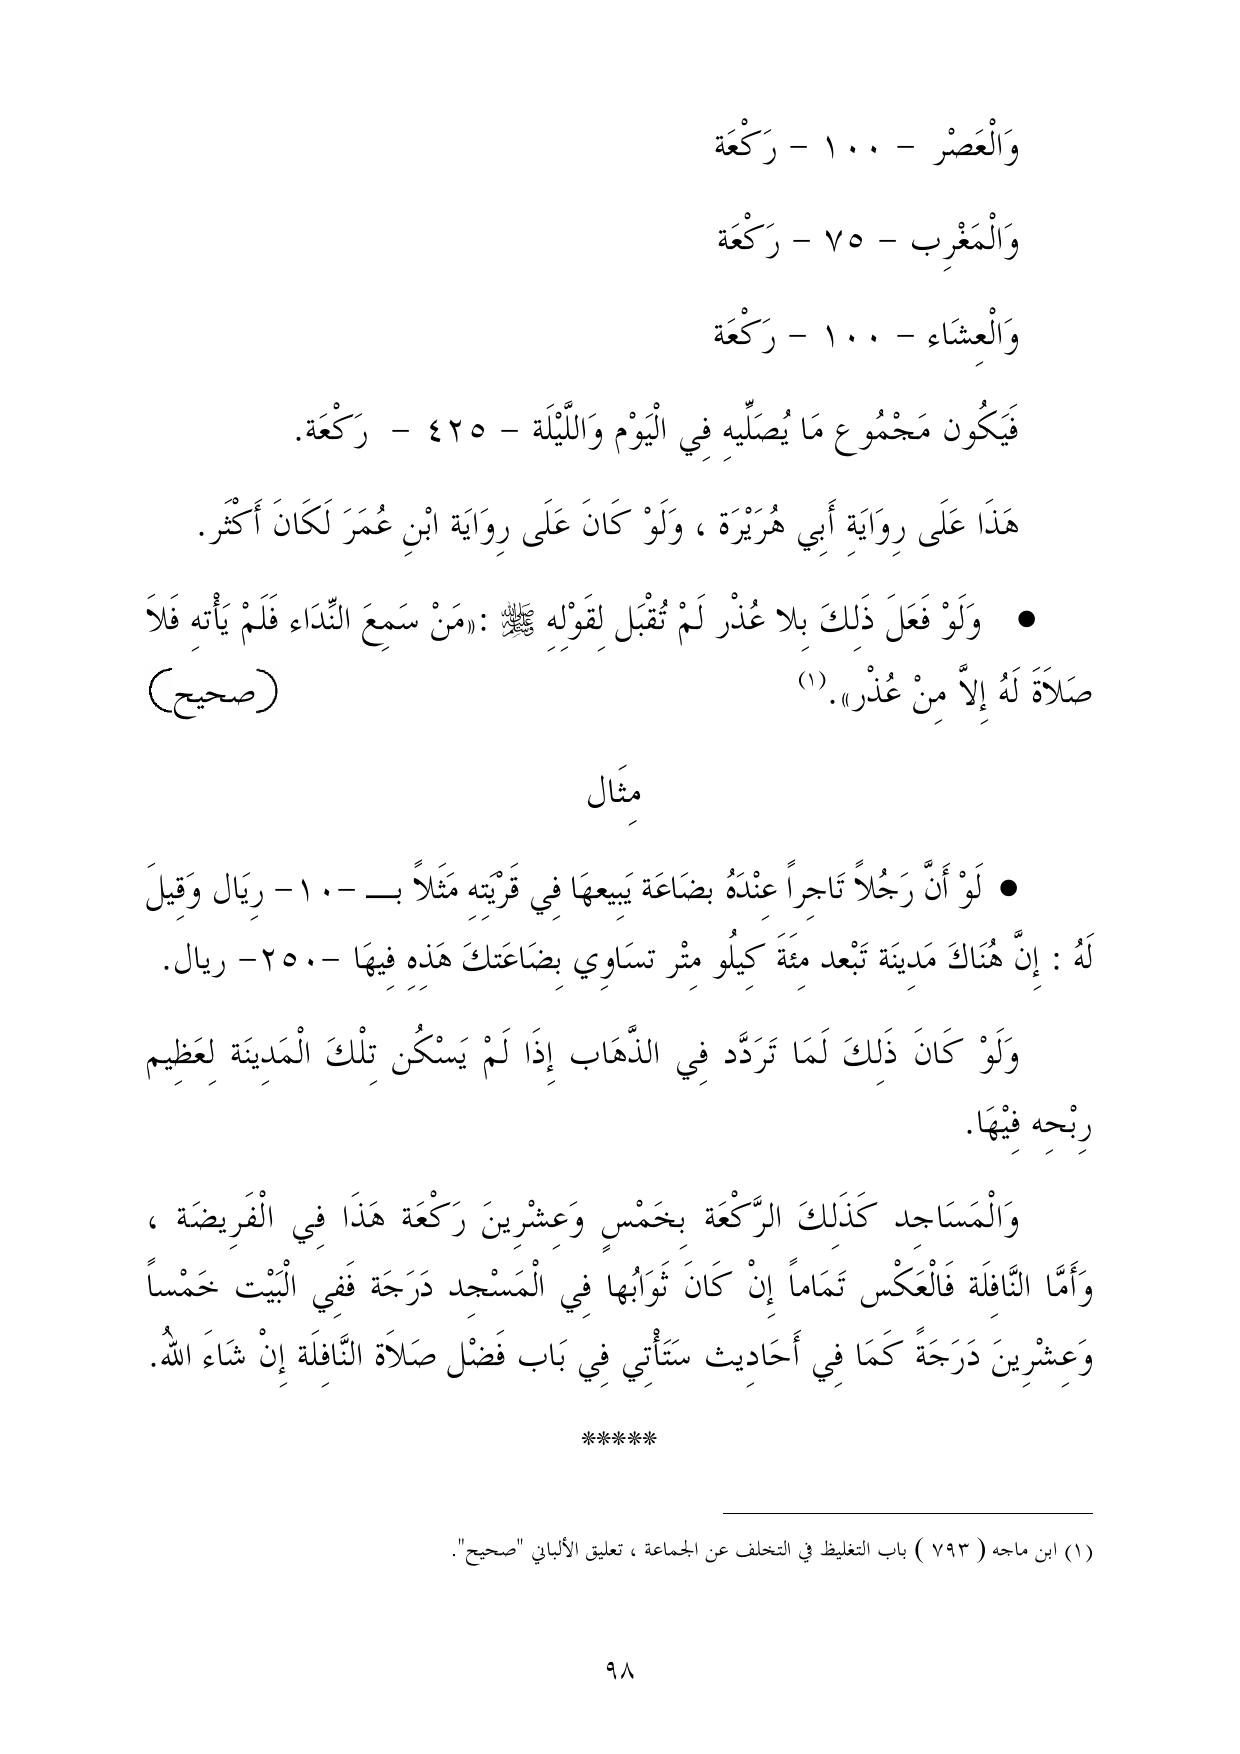 وَالْعَصْر – ١٠٠ – رَكْعَة
وَالْمَغْرِب – ٧٥ – رَكْعَة
وَالْعِشَاء – ١٠٠ – رَكْعَة
فَيَكُون مَجْمُوع مَا يُصَلِّيهِ فِي الْيَوْم وَاللَّيْلَة – ٤٢٥ – رَكْعَة.
هَذَا عَلَى رِوَايَةِ أَبِي هُرَيْرَة ، وَلَوْ كَانَ عَلَى رِوَايَة ابْنِ عُمَرَ لَكَانَ أَكْثَر.
● وَلَوْ فَعَلَ ذَلِكَ بِلا عُذْر لَمْ تُقْبَل لِقَوْلِهِ ﷺ :«مَنْ سَمِعَ النِّدَاء فَلَمْ يَأْتهِ فَلاَ
صَلاَةَ لَهُ إِلاَّ مِنْ عُذْر».(١) (صحيح)
مِثَال
● لَوْ أَنَّ رَجُلاً تَاجِراً عِنْدَهُ بضَاعَة يَبِيعهَا فِي قَرْيَتِهِ مَثَلاً بـــ –١٠– رِيَال وَقِيلَ
لَهُ : إِنَّ هُنَاكَ مَدِينَة تَبْعد مِئَةَ كِيلُو مِتْر تسَاوِي بِضَاعَتكَ هَذِهِ فِيهَا –٢٥٠– ريال.
وَلَوْ كَانَ ذَلِكَ لَمَا تَرَدَّد فِي الذَّهَاب إِذَا لَمْ يَسْكُن تِلْكَ الْمَدِينَة لِعَظِيم
رِبْحِه فِيْهَا.
وَالْمَسَاجِد كَذَلِكَ الرَّكْعَة بِخَمْسٍ وَعِشْرِينَ رَكْعَة هَذَا فِي الْفَرِيضَة ،
وَأَمَّا النَّافِلَة فَالْعَكْس تَمَاماً إِنْ كَانَ ثَوَابُها فِي الْمَسْجِد دَرَجَة فَفِي الْبَيْت خَمْساً
وَعِشْرِينَ دَرَجَةً كَمَا فِي أَحَادِيث سَتَأْتِي فِي بَاب فَضْل صَلاَة النَّافِلَة إِنْ شَاءَ اللهُ.
*****
(١) ابن ماجه ( ٧٩٣ ) باب التغليظ في التخلف عن الجماعة ، تعليق الألباني "صحيح".
٩٨